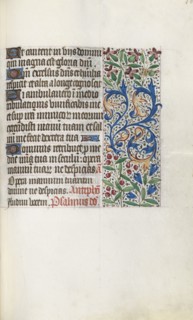 Et cantent in viis domini
qm̄ magna est gloria dn̄i
Qm̄ excelsus dn̄s et humilia
respicit et alta a longe cognoscit
Si ambulavero in medio
tribulationis vivificabis me
et super iram inimicorum meorum
extendisti manum tuam et salvum
me fecit dextera tua
Dominus retribuet pro me
dn̄e mīa tua in seculū opera
manuum tuarum ne despicias A
Opera manuum tuarum
domine ne despicias Antiphō
Psalmus dd